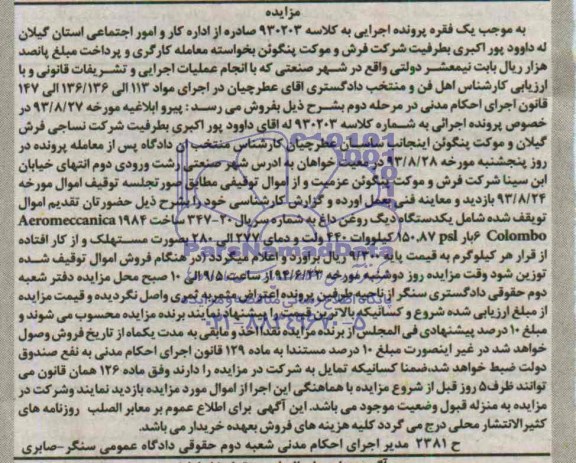 مزایده
به موجب یک فقره پرونده اجرایی به کلاسه ۹۳۰۲۰۳ صادره از اداره کار و امور اجتماعی استان گیلان
له داوود پور اکبری بطرفیت شرکت فرش و موکت پنگوئن بخواسته معامله کارگری و پرداخت مبلغ پانصد
هزار ریال بابت نیمعشر دولتی واقع در شهر صنعتی که با انجام عملیات اجرایی و تشریفات قانونی و با
ارزیابی کارشناس اهل فن و منتخب دادگستری اقای عطرچیان در اجرای مواد ۱۱۳ الی ۱۳۶/۱۳۶ الی ۱۴۷
قانون اجرای احکام مدنی در مرحله دوم بشرح ذیل بفروش می رسد: پیرو ابلاغیه مورخه ۹۳/۸/۲۷ در
خصوص پرونده اجرائی به شماره کلاسه ۹۳۰۲۰۳ له اقای داوود پور اکبری بطرفیت شرکت نساجی فرش
گیلان و موکت پنگوئن اینجانب ساسان عطرچیان کارشناس منتخب ان دادگاه پس از معامله پرونده در
روز پنجشنبه مورخه ۹۳/۸/۲۸ در معیت خواهان به ادرس شهر صنعتی رشت ورودی دوم انتهای خیابان
ابن سینا شرکت فرش و موکت پنگوئن عزمیت و از اموال توقیفی مطابق صورتجلسه توقیف اموال مورخه
۹۳/۸/۲۴ بازدید و معاینه فنی بعمل اورده و گزارش کارشناسی خود را بشرح ذیل حضورتان تقدیم اموال
توقیف شده شامل یکدستگاه دیگ روغن داغ به شماره سریال ۲۰-۳۴۷ ساخت ۱۹۸۴ Aeromeccanica
Colombo ۶بار ۱۵۰،۸۷ psl کیلووات ۴۴۰ ولت و دمای ۲۷۷ الی ۲۸۰ بصورت مستهلک و از کار افتاده
از قرار هر کیلوگرم به قیمت پایه ۹/۳۰۰ ریال براورد و اعلام میگردد (در هنگام فروش اموال توقیف شده
توزین شود وقت مزایده روز دوشنبه مورخه ۹۴/۶/۲۳ از ساعت ۹/۵ الی ۱۰ صبح محل مزایده دفتر شعبه
دوم حقوقی دادگستری سنگر از ناحیه طرفین پرونده اعتراض مثمر به ثمری واصل نگردیده و قیمت مزایده
از مبلغ ارزیابی شده شروع و کسانیکه بالاترین قیمت را پیشنهاد نمایند برنده مزایده محسوب می شوند و
مبلغ ۱۰ درصد پیشنهادی فی المجلس از برنده مزایده نقدا اخذ و مابقی به مدت یکماه از تاریخ فروش وصول
خواهد شد در غیر اینصورت مبلغ ۱۰ درصد مستندا به ماده ۱۲۹ قانون اجرای احکام مدنی به نفع صندوق
دولت ضبط خواهد شد، ضمنا کسانیکه تمایل به شرکت در مزایده را دارند وفق ماده ۱۲۶ همان قانون می
توانند ظرف۵ روز قبل از شروع مزایده با هماهنگی این اجرا از اموال مورد مزایده بازدید نمایند وشرکت در
مزایده به منزله قبول وضعیت موجود می باشد. این آگهی برای اطلاع عموم بر معابر الصلب روزنامه های
کثیرالانتشار محلی درج می گردد کلیه هزینه های فروش بعهده خریدار می باشد.
ح ۲۳۸۱ مدیر اجرای احکام مدنی شعبه دوم حقوقی دادگاه عمومی سنگر-صابری